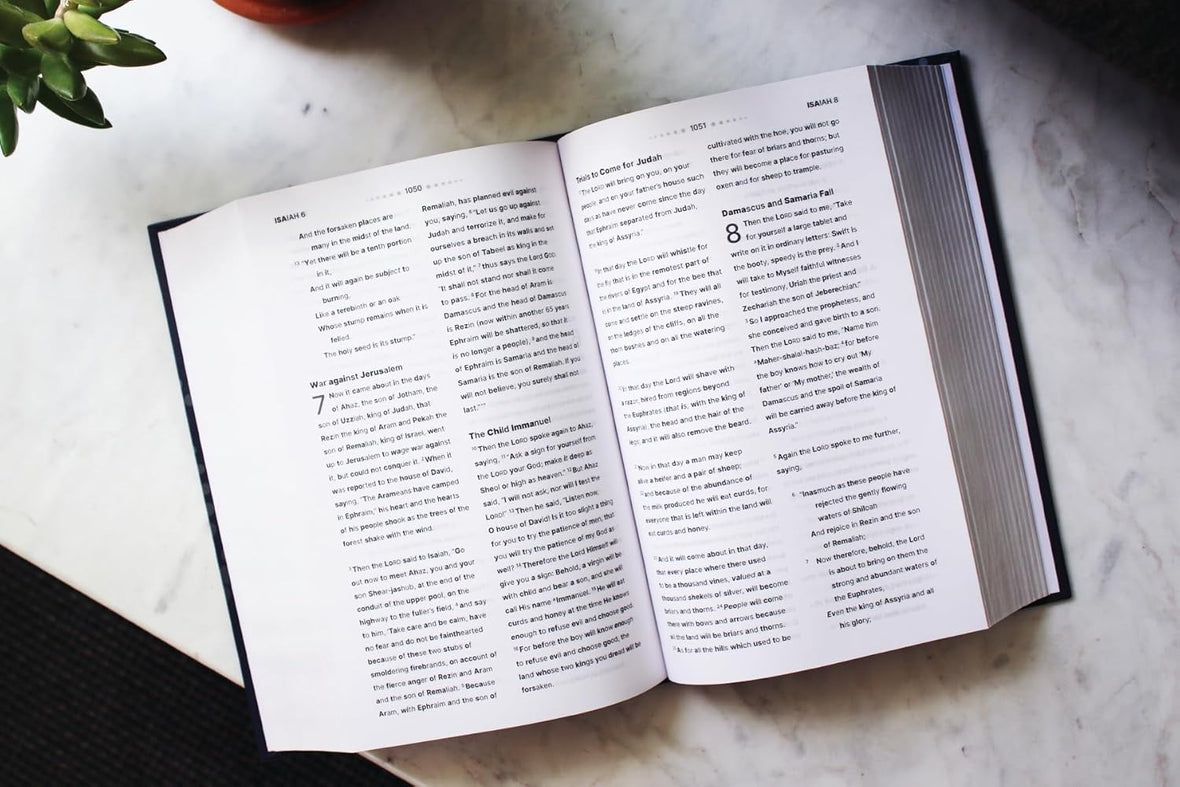 1050
ISAIAH 6
And the forsaken places are
many in the midst of the land.
13 "Yet there will be a tenth portion
in it,
And it will again be subject to
burning,
Like a terebinth or an oak
Whose stump remains when it is
felled.
The holy seed is its stump."
War against Jerusalem
7 Now it came about in the days
of Ahaz, the son of Jotham, the
son of Uzziah, king of Judah, that
Rezin the king of Aram and Pekah the
son of Remaliah, king of Israel, went
up to Jerusalem to wage war against
it, but could not conquer it. 2 When it
was reported to the house of David,
saying, "The Arameans have camped
in Ephraim," his heart and the hearts
of his people shook as the trees of the
forest shake with the wind.
3 Then the LORD said to Isaiah, "Go
out now to meet Ahaz, you and your
son Shear-jashub, at the end of the
conduit of the upper pool, on the
highway to the fuller's field, 4 and say
to him, 'Take care and be calm, have
no fear and do not be fainthearted
because of these two stubs of
smoldering firebrands, on account of
the fierce anger of Rezin and Aram
and the son of Remaliah. 5 Because
Aram, with Ephraim and the son of
Remaliah, has planned evil against
you, saying, 6 "Let us go up against
Judah and terrorize it, and make for
ourselves a breach in its walls and set
up the son of Tabeel as king in the
midst of it," 7 thus says the Lord GOD:
"It shall not stand nor shall it come
to pass. 8 For the head of Aram is
Damascus and the head of Damascus
is Rezin (now within another 65 years
Ephraim will be shattered, so that it
is no longer a people), 9 and the head
of Ephraim is Samaria and the head of
Samaria is the son of Remaliah. If you
will not believe, you surely shall not
last."'"
The Child Immanuel
10 Then the LORD spoke again to Ahaz,
saying, 11 "Ask a sign for yourself from
the LORD your God; make it deep as
Sheol or high as heaven." 12 But Ahaz
said, "I will not ask, nor will I test the
LORD!" 13 Then he said, "Listen now,
O house of David! Is it too slight a thing
for you to try the patience of men, that
you will try the patience of my God as
well? 14 Therefore the Lord Himself will
give you a sign: Behold, a virgin will be
with child and bear a son, and she will
call His name Immanuel. 15 He will eat
curds and honey at the time He knows
enough to refuse evil and choose good.
16 For before the boy will know enough
to refuse evil and choose good, the
land whose two kings you dread will be
forsaken.
1051
ISAIAH 8
Trials to Come for Judah
17 "The LORD will bring on you, on your
people, and on your father's house such
days as have never come since the day
that Ephraim separated from Judah,
the king of Assyria."
18 In that day the LORD will whistle for
the fly that is in the remotest part of
the rivers of Egypt and for the bee that
is in the land of Assyria. 19 They will all
come and settle on the steep ravines,
on the ledges of the cliffs, on all the
thorn bushes and on all the watering
places.
20 In that day the Lord will shave with
a razor, hired from regions beyond
the Euphrates (that is, with the king of
Assyria), the head and the hair of the
legs; and it will also remove the beard.
21 Now in that day a man may keep
alive a heifer and a pair of sheep;
22 and because of the abundance of
the milk produced he will eat curds, for
everyone that is left within the land will
eat curds and honey.
23 And it will come about in that day,
that every place where there used
to be a thousand vines, valued at a
thousand shekels of silver, will become
briars and thorns. 24 People will come
there with bows and arrows because
all the land will be briars and thorns.
25 As for all the hills which used to be
cultivated with the hoe, you will not go
there for fear of briars and thorns; but
they will become a place for pasturing
oxen and for sheep to trample.
Damascus and Samaria Fall
8 Then the LORD said to me, "Take
for yourself a large tablet and
write on it in ordinary letters: Swift is
the booty, speedy is the prey. 2 And I
will take to Myself faithful witnesses
for testimony, Uriah the priest and
Zechariah the son of Jeberechiah."
3 So I approached the prophetess, and
she conceived and gave birth to a son.
Then the LORD said to me, "Name him
Maher-shalal-hash-baz; 4 for before
the boy knows how to cry out 'My
father' or 'My mother,' the wealth of
Damascus and the spoil of Samaria
will be carried away before the king of
Assyria."
5 Again the LORD spoke to me further,
saying,
6 "Inasmuch as these people have
rejected the gently flowing
waters of Shiloah
And rejoice in Rezin and the son
of Remaliah;
7 Now therefore, behold, the Lord
is about to bring on them the
strong and abundant waters of
the Euphrates,
Even the king of Assyria and all
his glory;